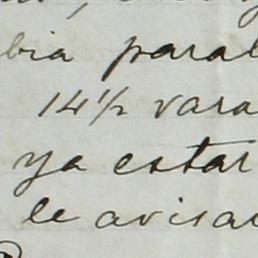 bia paral
14½ vara
ya estar
le avisar